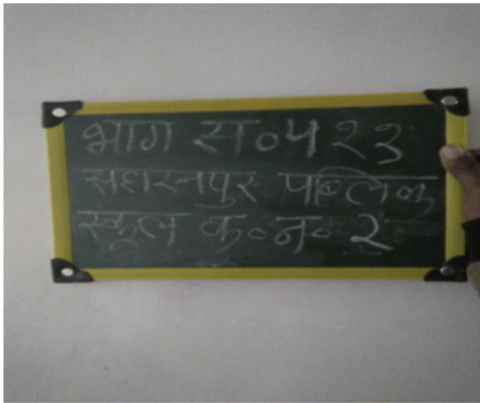 भाग स०५२३
सहारनपुर पब्लिक
स्कूल क०न०२